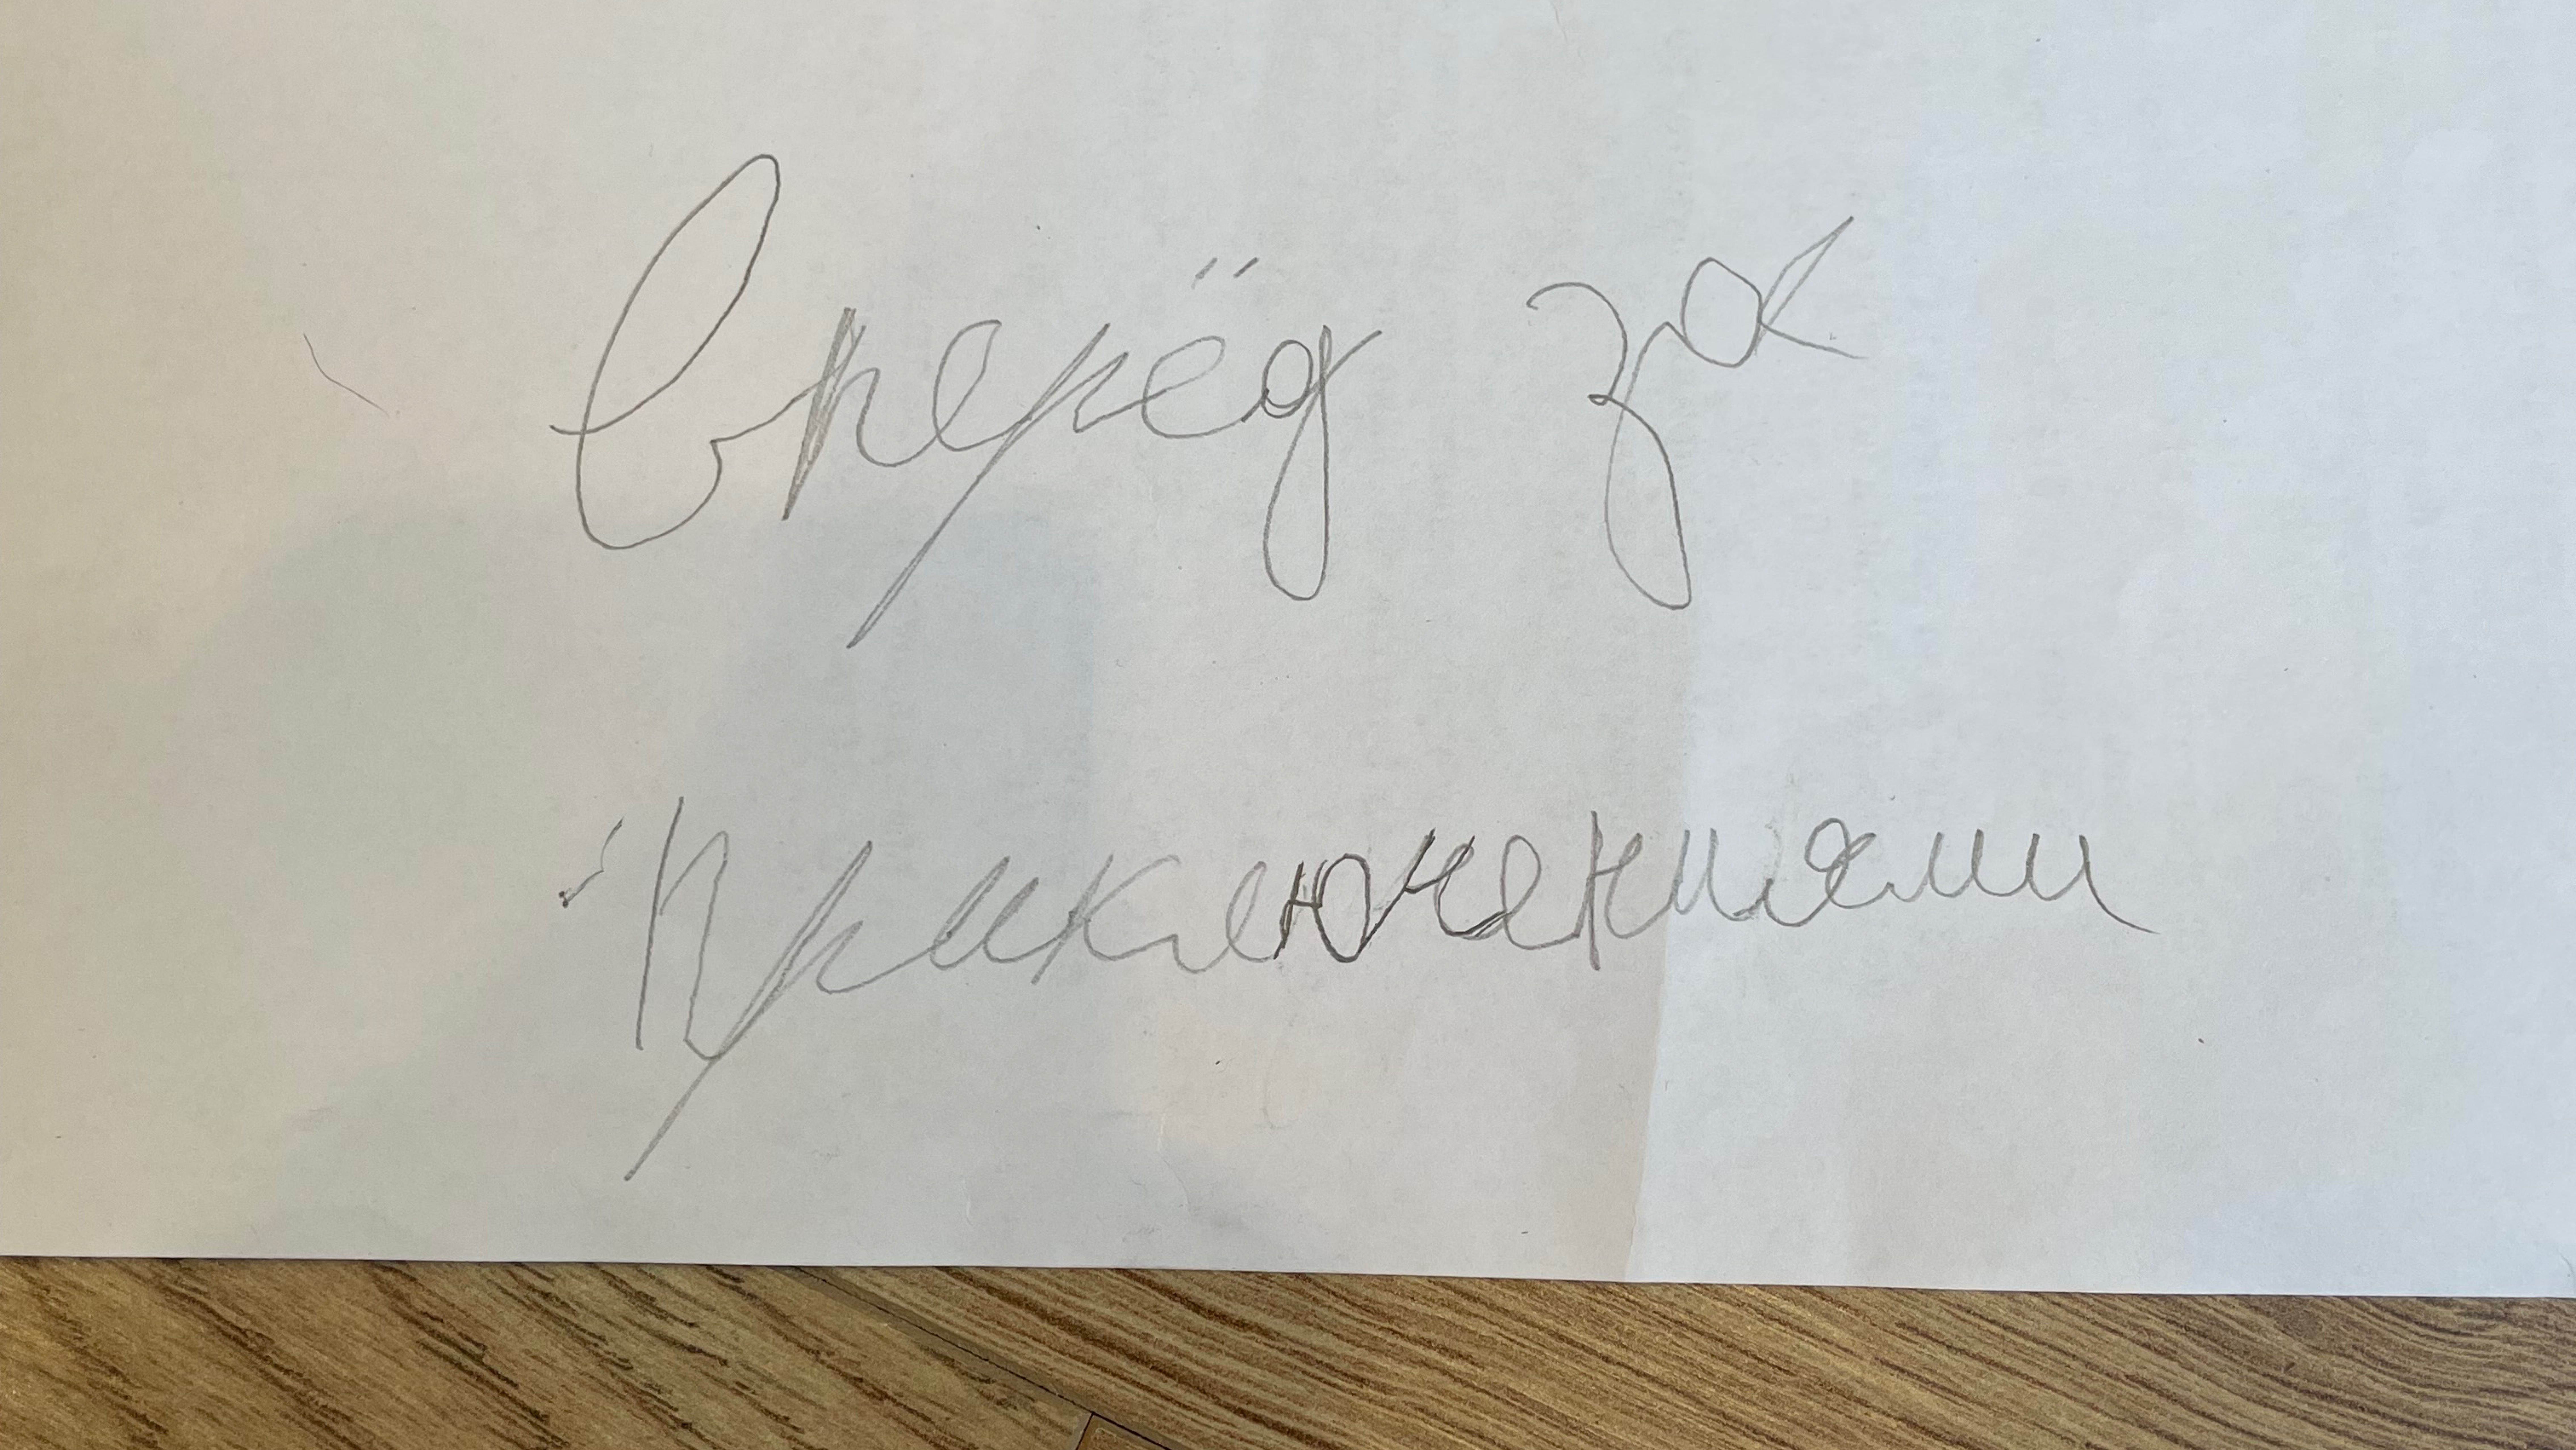 Вперёд за
приключениями